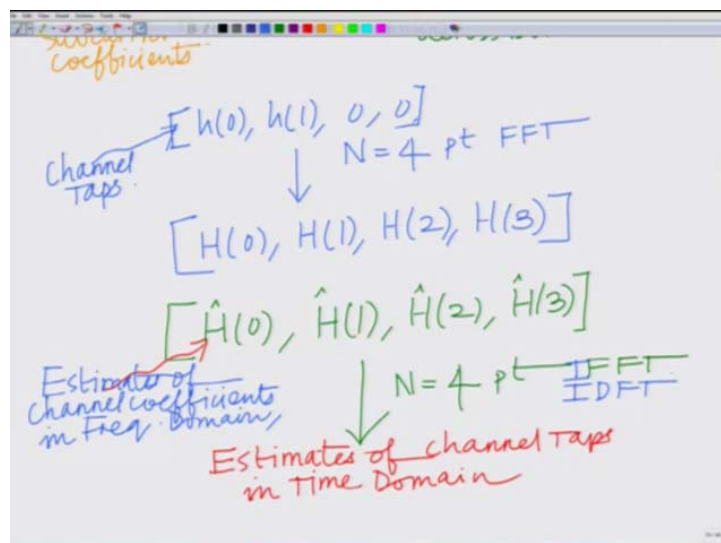 coefficients
[h(0), h(1), 0, 0]
N = 4 pt FFT
Channel
Taps.
[H(0), H(1), H(2), H(3)]
[Ĥ(0), Ĥ(1), Ĥ(2), Ĥ(3)]
Estimates of
channel coefficients
in Freq. Domain,
N = 4 pt IFFT
IDFT
Estimates of channel Taps
in Time Domain